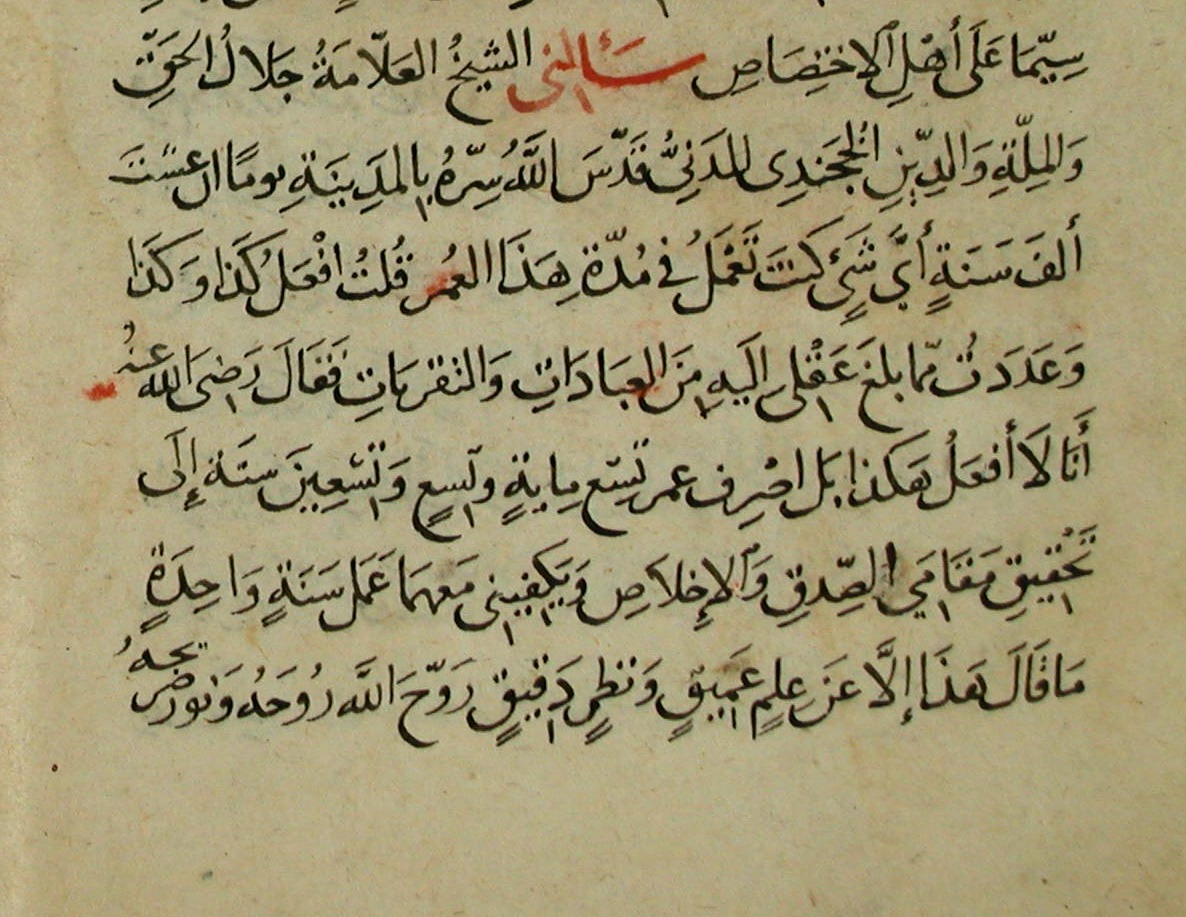 سِيّمَا عَلَى أَهْلِ الاخْتِصَاصِ سَأَلَنِي الشيخُ العَلّامَةُ جَلالُ الحَقِّ
وَالمِلّةِ وَالدِّينِ الخُجَندِى المَدَنِيُّ قَدّسَ اللَّهُ سِرّهُ بِالمَدِينَةِ يومًا ان عشتَ
ألفَ سَنَةٍ أيَّ شَيْءٍ كنتَ تَعْمَلُ فِي مُدّةِ هَذَا العُمرِ قُلتُ افْعَلُ كَذَا وَكَذَا
وَعَدَدتُ مّما بلغَ عَقْلِى إِلَيهِ مِنَ العِبَادَاتِ وَالتقربَاتِ فَقَالَ رَضِىَ الله عنهُ
أَنَا لَا أَفعَلُ هَكذا بَل اصْرِف عمر تِسع مِايةٍ وتِسعٍ وَتِسْعِينَ سنَة إِلَى
تَحْقِيقِ مَقَامَيِ الصِّدقِ وَالإِخلاَصِ وَيَكفِينِى مَعهمَا عَمَل سَنَةٍ وَاحِدَةٍ
مَا قَالَ هَذَا إِلَّا عَن عِلمٍ عَمِيقٍ وَنظرٍ دَقِيقٍ رَوّحَ اللَّه رُوحَهُ وَنور ضريحهُ